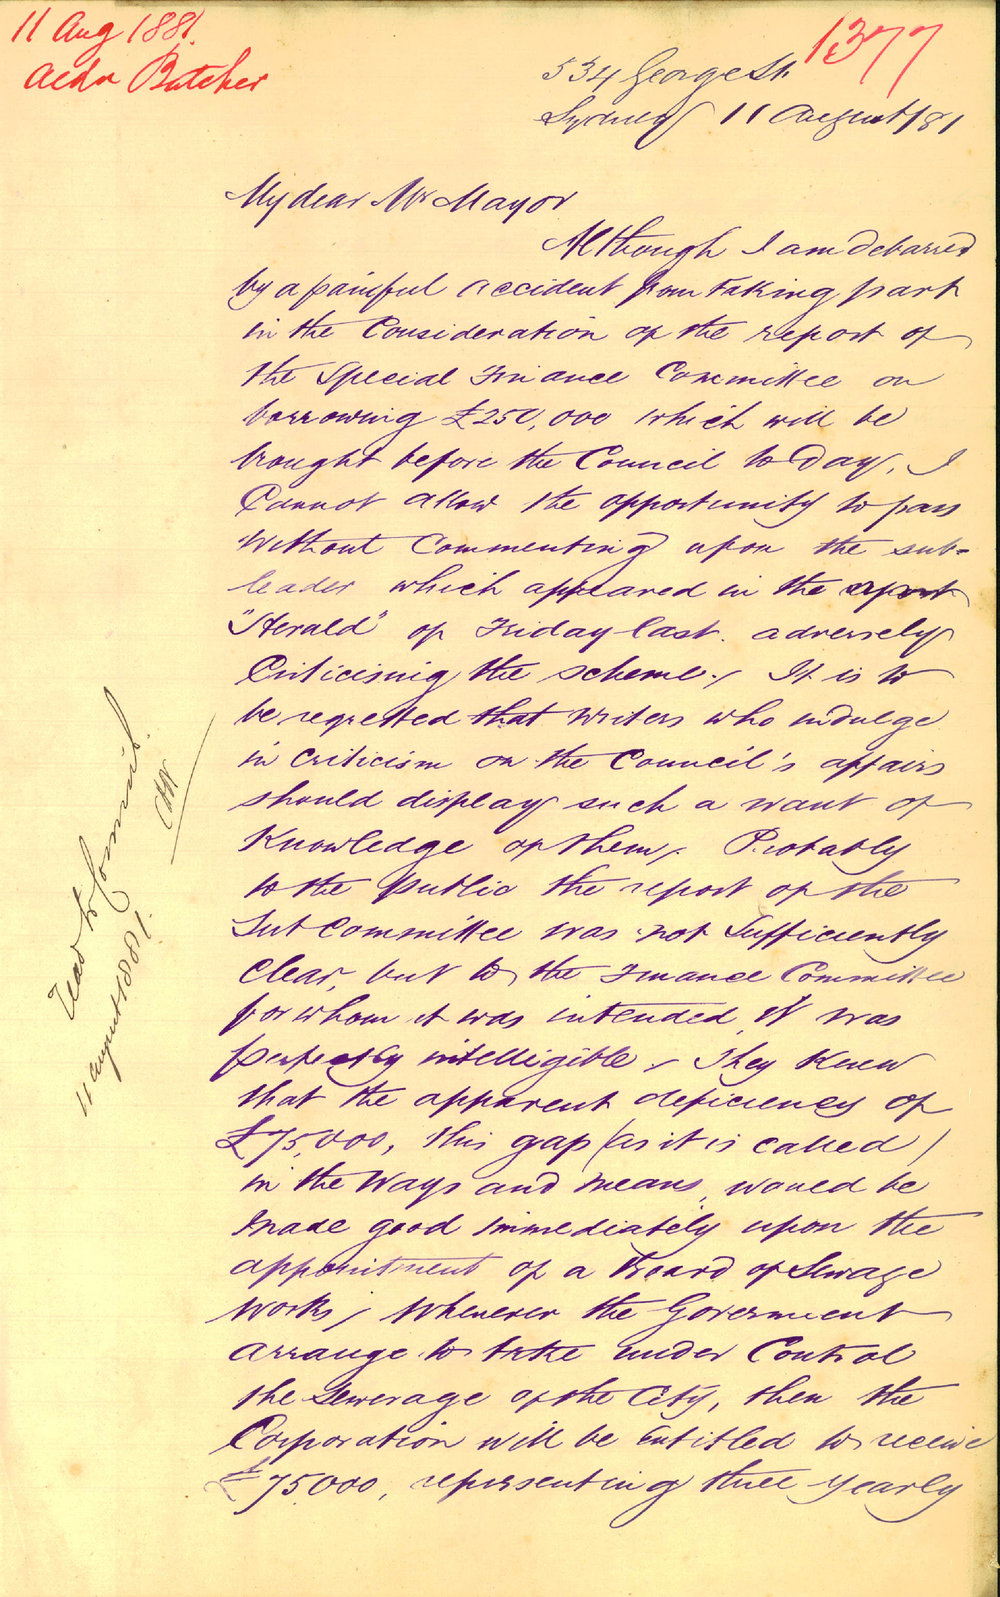 11 Aug 1881.
Aldn Butcher
1377
534 George St.
Sydney 11 August/81
My dear Mr Mayor
Although I am debarred
by a painful accident from taking part
in the Consideration of the report of
the Special Finance Committee on
borrowing £250,000 which will be
brought before the Council to day, I
Cannot allow the opportunity to pass
without Commenting upon the sub-
leader which appeared in the report
"Herald" of Friday last. adversely
Criticising the scheme. It is to
be regretted that writers who indulge
in criticism on the Council's affairs
should display such a want of
Knowledge of them. Probably
to the public the report of the
Sub Committee was not Sufficiently
Clear, but to the Finance Committee
for whom it was intended, it was
perfectly intelligible. They Knew
that the apparent deficiency of
£75,000, this gap (as it is called)
in the Ways and Means, would be
made good immediately upon the
appointment of a Board of Sewage
Works, Whenever the Government
arrange to take under Control
the Sewerage of the City, then the
Corporation will be entitled to receive
£75000, representing three yearly
Read to Committ.
11 August 1881.